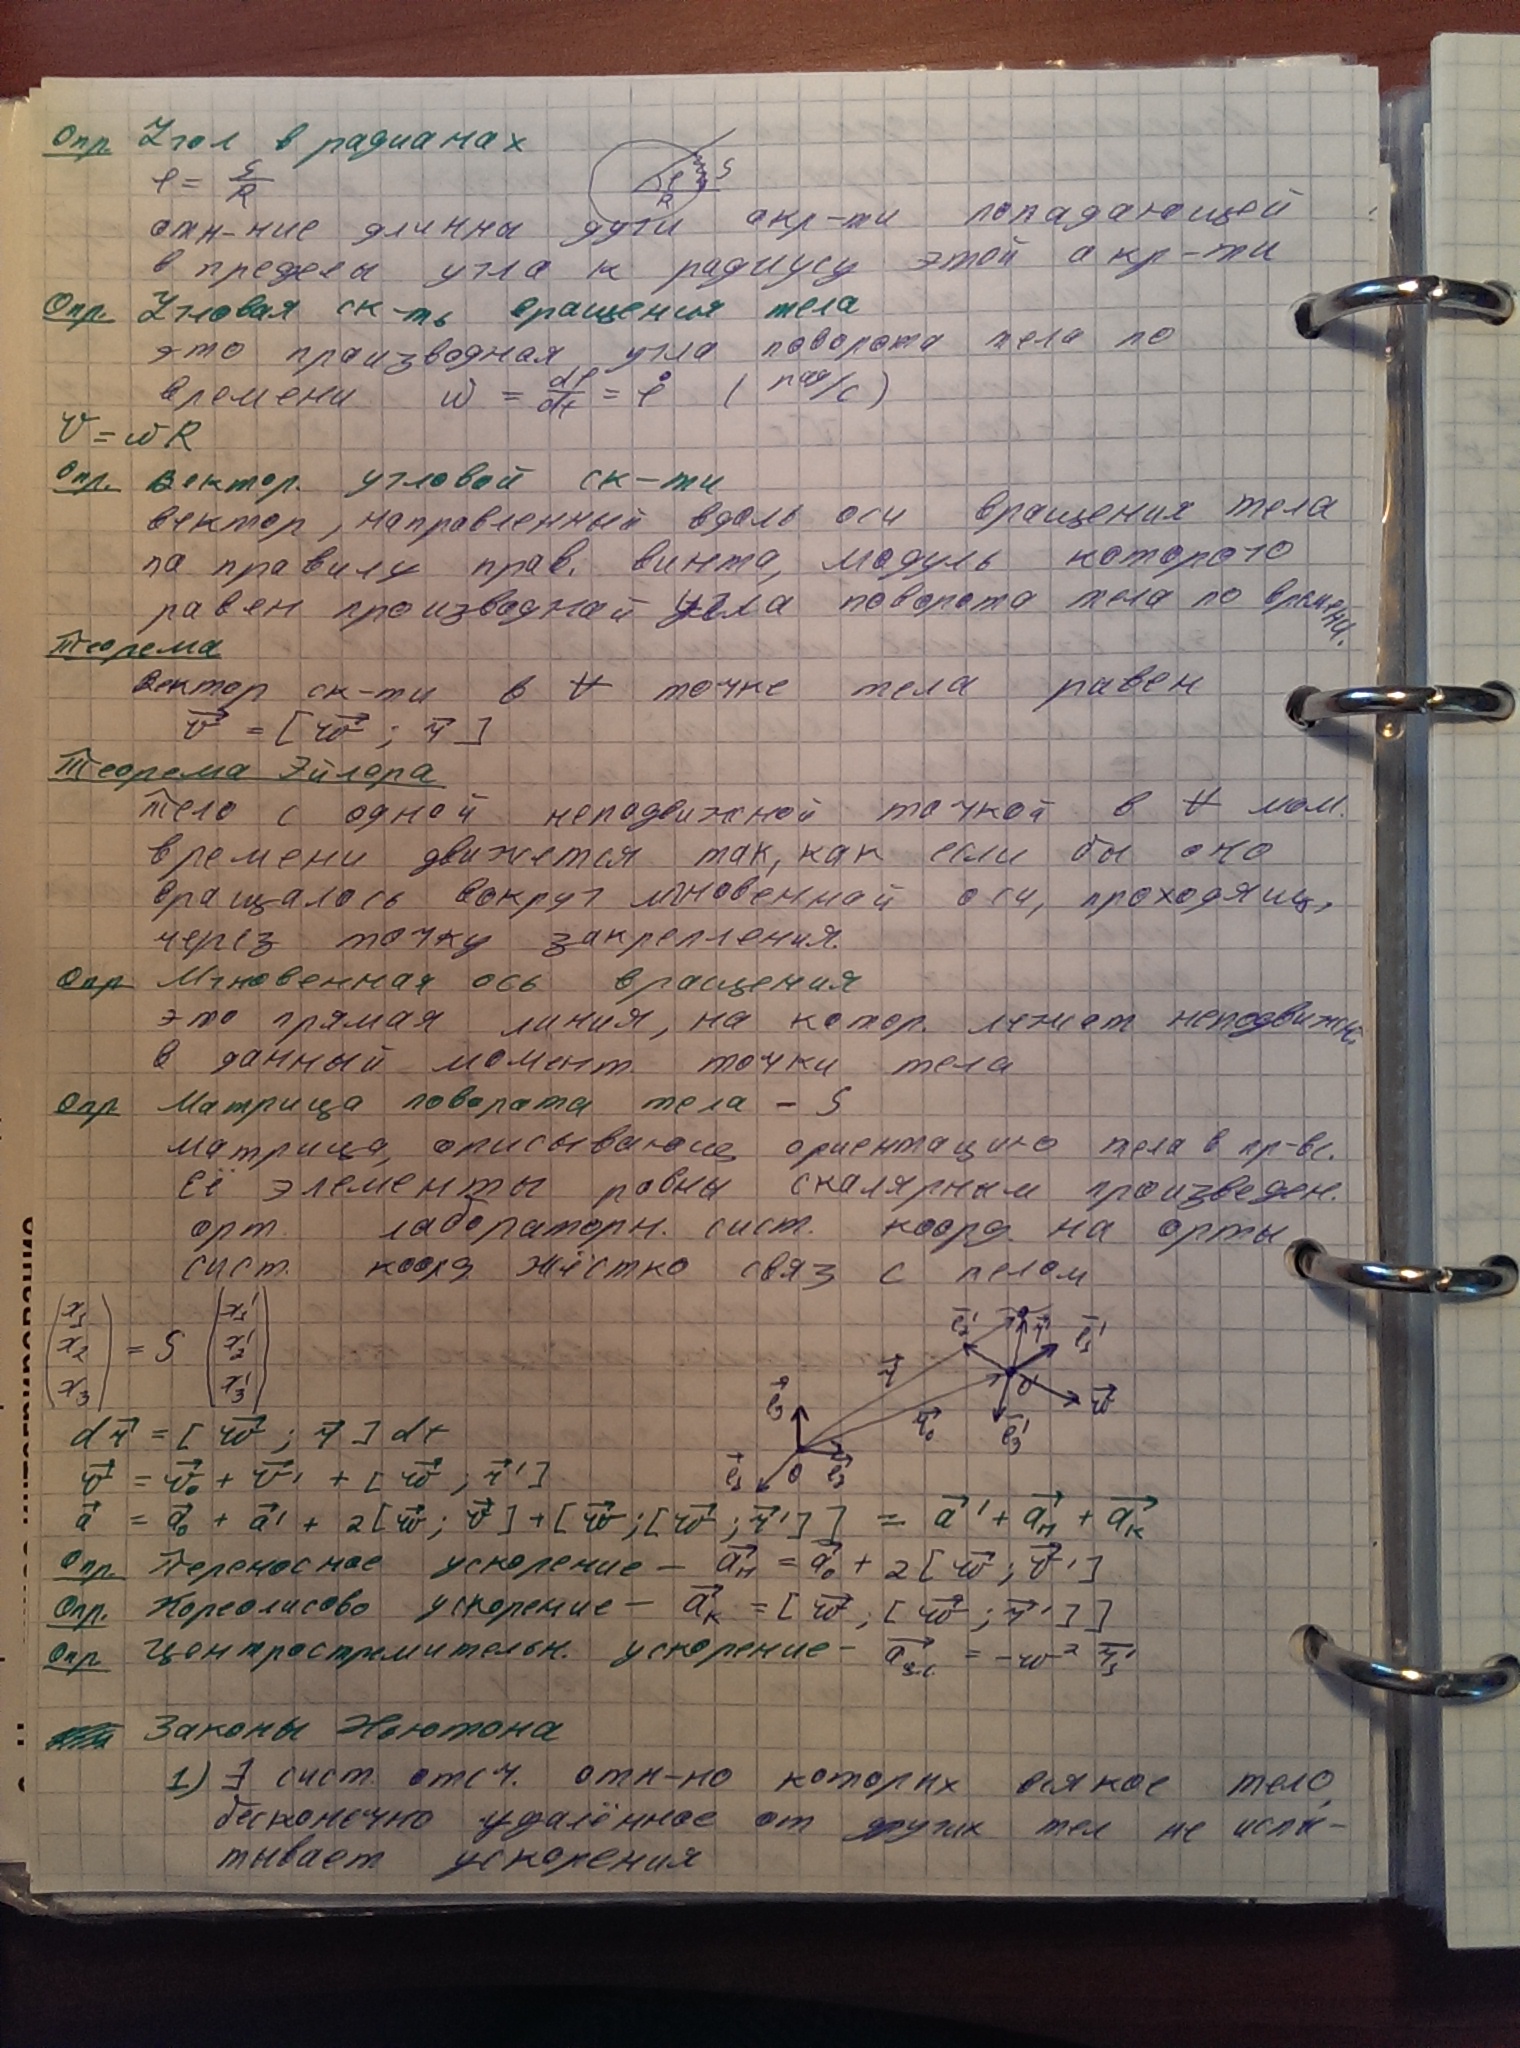 Опр. Угол в радианах
φ = S/R
отн-ние длинны дуги окр-ти попадающей
в пределы угла к радиусу этой окр-ти
Опр. Угловая ск-ть вращения тела
это производная угла поворота тела по
времени ω = dφ/dt = φ̇ (рад/с)
V = ωR
Опр. Вектор. угловой ск-ти
вектор, направленный вдоль оси вращения тела
по правилу прав. винта, модуль которого
равен производной угла поворота тела по времени.
Теорема
Вектор ск-ти в ∀ точке тела равен
v⃗ = [w⃗ ; r⃗]
Теорема Эйлера
Тело с одной неподвижной точкой в ∀ мом.
времени движется так, как если бы оно
вращалось вокруг мгновенной оси, проходящ.
через точку закрепления.
Опр Мгновенная ось вращения
это прямая линия, на котор. лежат неподвижн.
в данный момент. точки тела
Опр Матрица поворота тела - S
матрица, описывающ ориентацию тела в пр-ве.
Её элементы равны скалярным произведен.
орт. лабораторн. сист. коорд. на орты
сист. коорд жёстко связ с телом
(x₁ x₂ x₃) = S (x₁' x₂' x₃')
dr⃗ = [w⃗ ; r⃗] dt
v⃗ = v⃗₀ + v⃗' + [w⃗ ; r⃗']
a⃗ = a⃗₀ + a⃗' + 2[w⃗ ; v⃗] + [w⃗ ; [w⃗ ; r⃗']] = a⃗' + a⃗н + a⃗к
Опр. Переносное ускорение - a⃗н = a⃗₀ + 2[w⃗ ; v⃗']
Опр. Кореолисово ускорение - a⃗к = [w⃗ ; [w⃗ ; r⃗']]
Опр Центростремительн. ускорение - a⃗ц.с. = -w² r⃗₁'
Законы Ньютона
1) ∃ сист. отсч. отн-но которых всякое тело,
бесконечно удалённое от других тел не испы-
тывает ускорения